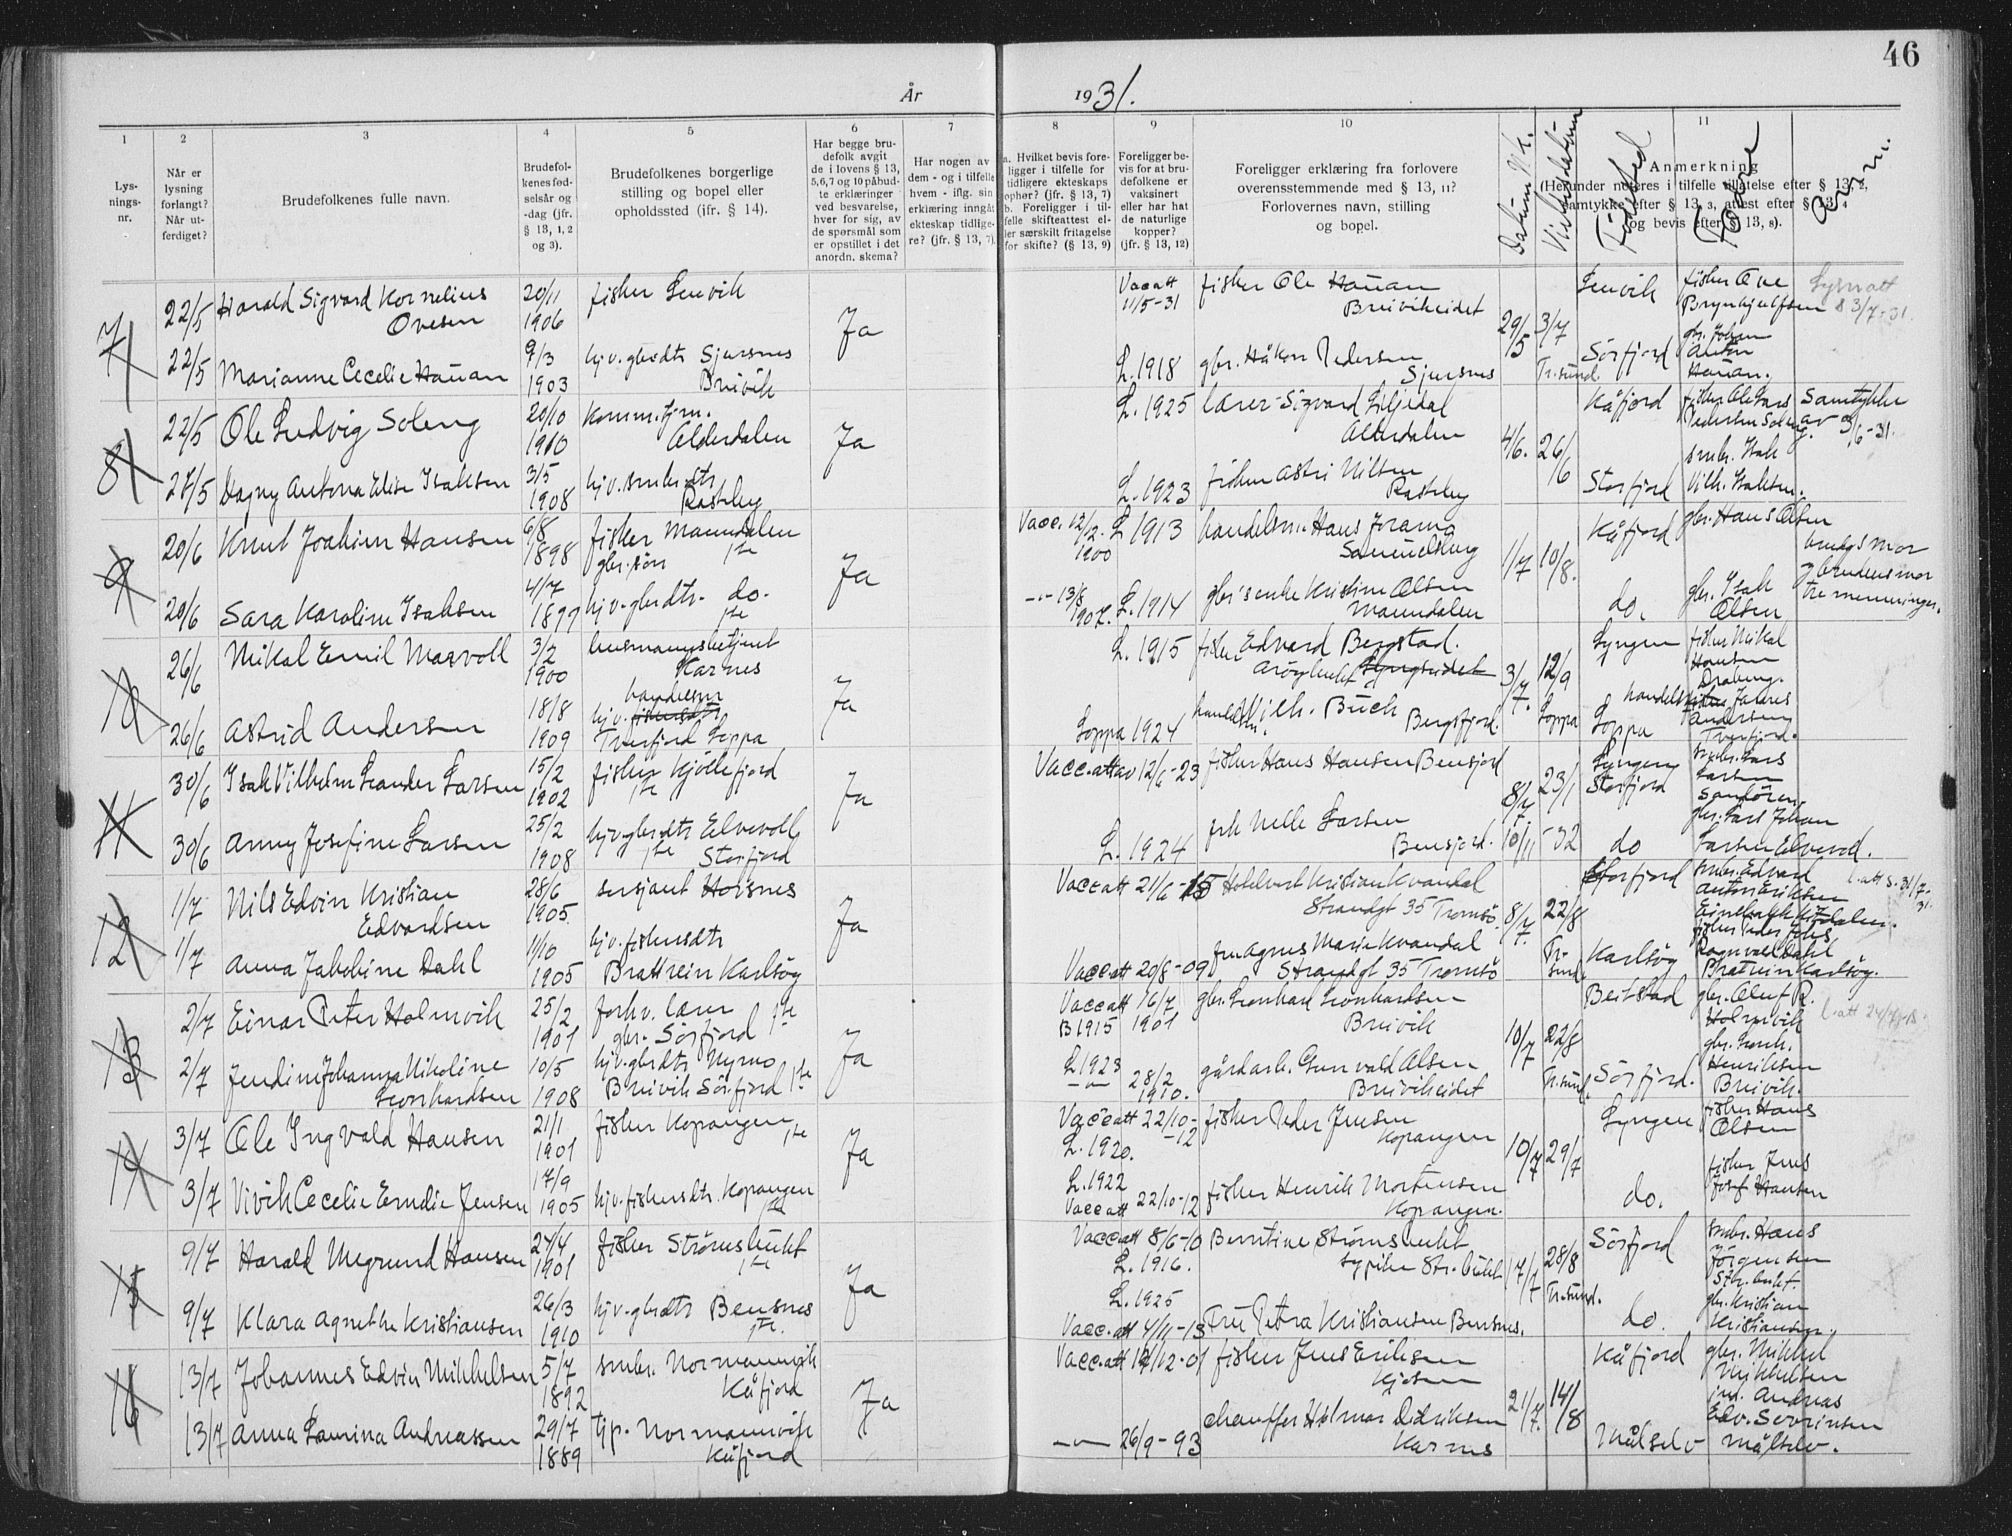 46
År 1931.
1 2 3 4 5 6 7 8 9 10 11
Lys-
nings-
nr.
Når er
lysning
forlangt?
Når ut-
ferdiget?
Brudefolkenes fulle navn.
Brudefol-
kenes fød-
selsår og
-dag (jfr.
§ 13, 1, 2
og 3).
Brudefolkenes borgerlige
stilling og bopel eller
opholdssted (ifr. § 14).
Har begge bru-
defolk avgit
de i lovens § 13,
5,6,7 og 10 påbud-
te erklæringer
ved besvarelse,
hver for sig, av
de spørsmål som
er opstillet i det
anordn. skema?
Har nogen av
dem - og i tilfelle
hvem - iflg. sin
erklæring inngåt
ekteskap tidlige-
re? (jfr. § 13, 7).
a. Hvilket bevis fore-
ligger i tilfelle for
tidligere ekteskaps
opher? (jfr. § 13, 7)
b. Foreligger i til-
felle skifteattest el-
ler særskilt fritagelse
for skifte? (§ 13, 9)
Foreligger be-
vis for at bru-
defolkene er
vaksinert
eller har hat
de naturlige
kopper?
(jfr. § 13, 12)
Foreligger erklæring fra forlovere
overensstemmende med § 13, 11?
Forlovernes navn, stilling
og bopel.
Vielsesdatum
Fødested
Anmerkning
(Herunder noteres i tilfelle tillatelse efter § 13, 2,
samtykke efter § 13, 3, attest efter § 13, 4
og bevis efter § 13, 8).
Anm.
7
22/5 Harald Sigvard Kornelius
Ovesen
20/11
1906
fisker Lenvik
Ja
Vaccatt
11/5-31
fisker Ole Hauan
Breivikeidet
29/5
3/7
Tr.sund
Lenvik
fisker Ove
Brynhjulfsen
22/5 Marianne Cecelie Hauan
9/3
1903
hj.v. gbrdtr Sjursnes
Breivik
L. 1918
gbr. Håkon Pedersen
Sjursnes
Sørfjord
gbr. Johan
Anton
Hauan.
8
22/5 Ole Ludvig Soleng
20/10
1910
Komm.
Olderdalen
Ja
L. 1925
lærer Sigvard Liljedal
Olderdalen
4/6.
26/6
Kåfjord
fisker Ole Lars
Pedersen Soleng.
Samtykke
av 3/6-31.
27/5 Dagny Antona Elise Isaksen
3/5
1908
hj.v. smbr.dtr
Rasteby
L. 1923
fisker Astri Nilsen
Rasteby
Storfjord
smbr. Isak
Vilh. Isaksen.
9
20/6 Knut Joakim Hansen
6/8
1898
fisker Manndalen
gbr.søn 1ste
Ja
Vacc. 12/2-
1900
L 1913
handelsm. Hans
Samuelsberg
1/7
10/8.
Kåfjord
gbr. Hans Olsen
brudgs mor
og brudens mor
tre menninger.
20/6 Sara Karoline Isaksen
4/7
1897
hj.v. gbrdtr. do.
1ste
-"- 13/8
1907.
L. 1914
gbr's enke Kristine Olsen
Manndalen
do.
gbr. Isak
Olsen
10
26/6 Mikal Emil Marvoll
3/2
1900
lensmannsbetjent
Karnes
Ja
L. 1915
fisker Edvard Bergstad.
Årøybukt Lyngseidet
3/7.
12/9
Loppa
Lyngen
fisker Mikal
Hansen
26/6 Astrid Andersen
18/8
1909
handelsm
hj.v. fiskersdtr
Tverfjord Loppa
Loppa 1924
handelsm. Vilh. Buch
Bergsfjord.
Loppa
Andersen
Tverfjord.
11
30/6 Isak Vilhelm Leander Larsen
15/2
1902
fisker Kjøllefjord
1ste
Ja
Vacc.att av 12/6-23
fisker Hans Hansen Bensjord
8/7.
10/11
23/1
-32
Lyngen
Storfjord
smbr. Lars
Larsen
Sandøren.
30/6 Anny Josefine Larsen
25/2
1908
hjv gbrdtr Elvevoll
1ste Storfjord
L. 1924
frk Nelle Larsen
Bensjord.
do
gbr. Lars Johan
Larsen Elvevol.
12
1/7 Nils Edvin Kristian
Edvardsen
28/6
1905.
sersjant Horsnes
Ja
Vaccatt 21/6-15
Kristian Kvandal
Strandgt 35 Tromsø.
8/7.
22/8
Tr-
sund
Storfjord
smbr. Edvard
Anton Eriksen
l.att s. 31/7-
31.
1/7 Anna Jakobine Dahl
1/10
1905
hj.v. fiskersdtr
Brattrein Karlsøy
Vaccatt 20/8-09
fru Agnes Marie Kvandal
Strandgt 35 Tromsø
Karlsøy
Ragnvald Dahl
Bratrein Karlsøy.
13
2/7 Einar Peter Holmvik
25/2
1901
forhv. lærer 1ste
gbr. Sørfjord
Ja
Vaccatt 16/7
B 1915 1901
gbr. Leonhard Leonhardsen
Breivik
10/7
22/8
Tr.sund.
Beitstad
gbr. Oluf R.
Holmvik
2/7 Jendine Johanna Nikoline
Leonhardsen
10/5
1908
hj.v. gbrdtr Nymo
Breivik Sørfjord 1ste
L 1923
-"- 28/2
1910.
gårdarb. Gunvald Olsen
Breivikeidet
Sørfjord.
gbr. Leonh.
Henriksen
Breivik.
14
3/7 Ole Ingvald Hansen
21/1
1901
fisker Kopangen
1ste
Ja
Vaccatt 22/10-
-12
L. 1920.
fisker Peder Jensen
Kopangen
10/7
29/7
Lyngen
fisker Hans
Olsen
3/7 Vivik Cecelie Emelie Jensen
17/9
1905
hj.v. fiskersdtr. Kopangen
1ste
L. 1922
Vaccatt 22/10-12
fisker Henrik Mortensen
Kopangen.
do.
fisker Jens
Josef Hansen
15
9/7 Harald Megrund Hansen
24/4
1901
fisker Strømsbukt
1ste
Ja
Vaccatt 8/6-10
L. 1916.
Berntine Strømsbukt
sypike Str.bukt
17/7
28/8
Tr.sund.
Sørfjord
smbr. Hans
Jørgensen
Str.bukt.
9/7 Klara Agnethe Kristiansen
26/3
1910
hj.v. gbrdtr Bensnes
1ste.
L. 1925
Vacc.att 4/11-13
Fru Petra Kristiansen Bensnes.
do.
gbr. Kristian
Kristiansen.
16
13/7 Johannes Edvin Mikkelsen
5/7
1892
smbr. Normannvik
Kåfjord
Ja
Vacc.att 14/12-01
fisker Jens Eriksen
Kjosen
21/7.
14/8
Kåfjord
gbr. Mikkel
Mikkelsen
13/7 Anna Laurina Andreassen
29/7
1889
tjp. Normannvik
Kåfjord
-"- 26/9-93
chauffør Holmar Didriksen
Karnes
Målselv
Andreas
Edv. Sevrinsen
Målselv.